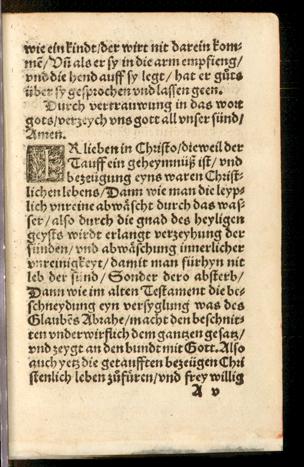 wie ein kindt/der wirt nit darein kom-
mē/Vñ als er sy in die arm empfieng/
vnd die hend auff sy legt/hat er gůts
über sy gesprochen vnd lassen geen.
Durch vertrauwung in das wort
gots/verzeych vns gott all vnser sünd/
Amen.
IR lieben in Christo/dieweil der
Tauff ein geheymnüß ist/vnd
bezeügung eyns waren Christ-
lichen lebens/Dann wie man die leyp-
lich vnreine abwäscht durch das was-
ser/also durch die gnad des heyligen
geysts wirdt erlangt verzeyhung der
sünden/vnd abwäschung innerlicher
vnreinigkeyt/damit man fürhyn nit
leb der sünd/Sonder dero absterb/
Dann wie im alten Testament die be-
schneydung eyn versyglung was des
Glaubēs Abrahe/macht den beschnit-
ten vnderwirflich dem gantzen gesatz/
vnd zeygt an den bundt mit Gott. Also
auch yetz die getaufften bezeügen Chri
stenlich leben zůfüren/vnd frey willig
A v